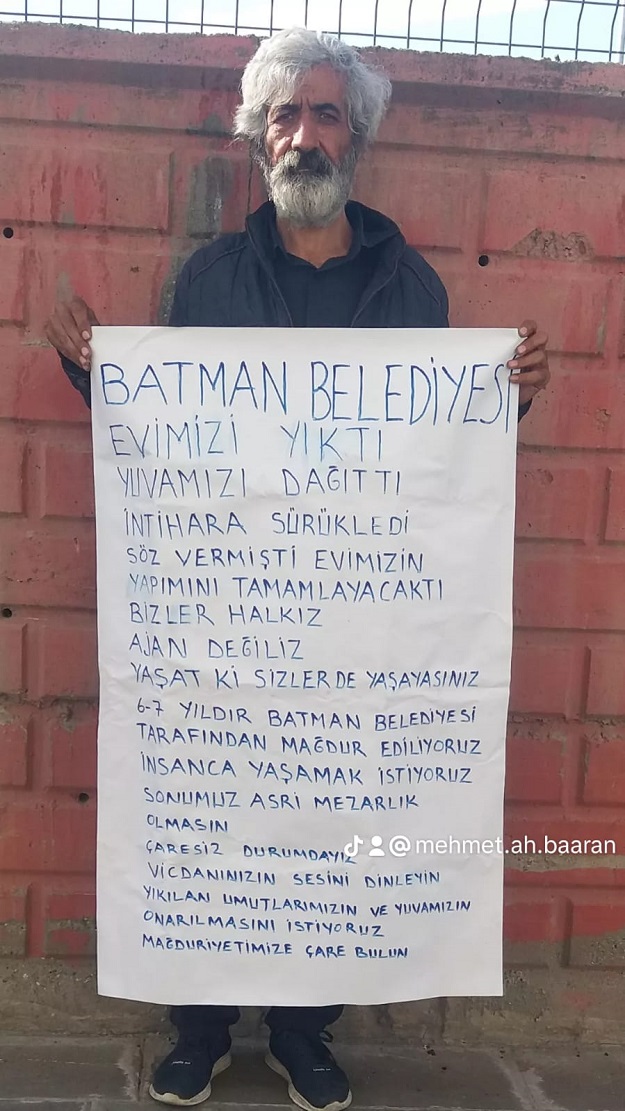 BATMAN BELEDİYESİ
EVİMİZİ YIKTI
YUVAMIZI DAĞITTI
İNTİHARA SÜRÜKLEDİ
SÖZ VERMİŞTİ EVİMİZİN
YAPIMINI TAMAMLAYACAKTI
BİZLER HALKIZ
AJAN DEĞİLİZ
YAŞAT Kİ SİZLER DE YAŞAYASINIZ
6-7 YILDIR BATMAN BELEDİYESİ
TARAFINDAN MAĞDUR EDİLİYORUZ
İNSANCA YAŞAMAK İSTİYORUZ
SONUMUZ ASRİ MEZARLIK
OLMASIN
ÇARESİZ DURUMDAYIZ
@mehmet.ah.baaran
VİCDANINIZIN SESİNİ DİNLEYİN
YIKILAN UMUTLARIMIZIN VE YUVAMIZIN
ONARILMASINI İSTİYORUZ
MAĞDURİYETİMİZE ÇARE BULUN